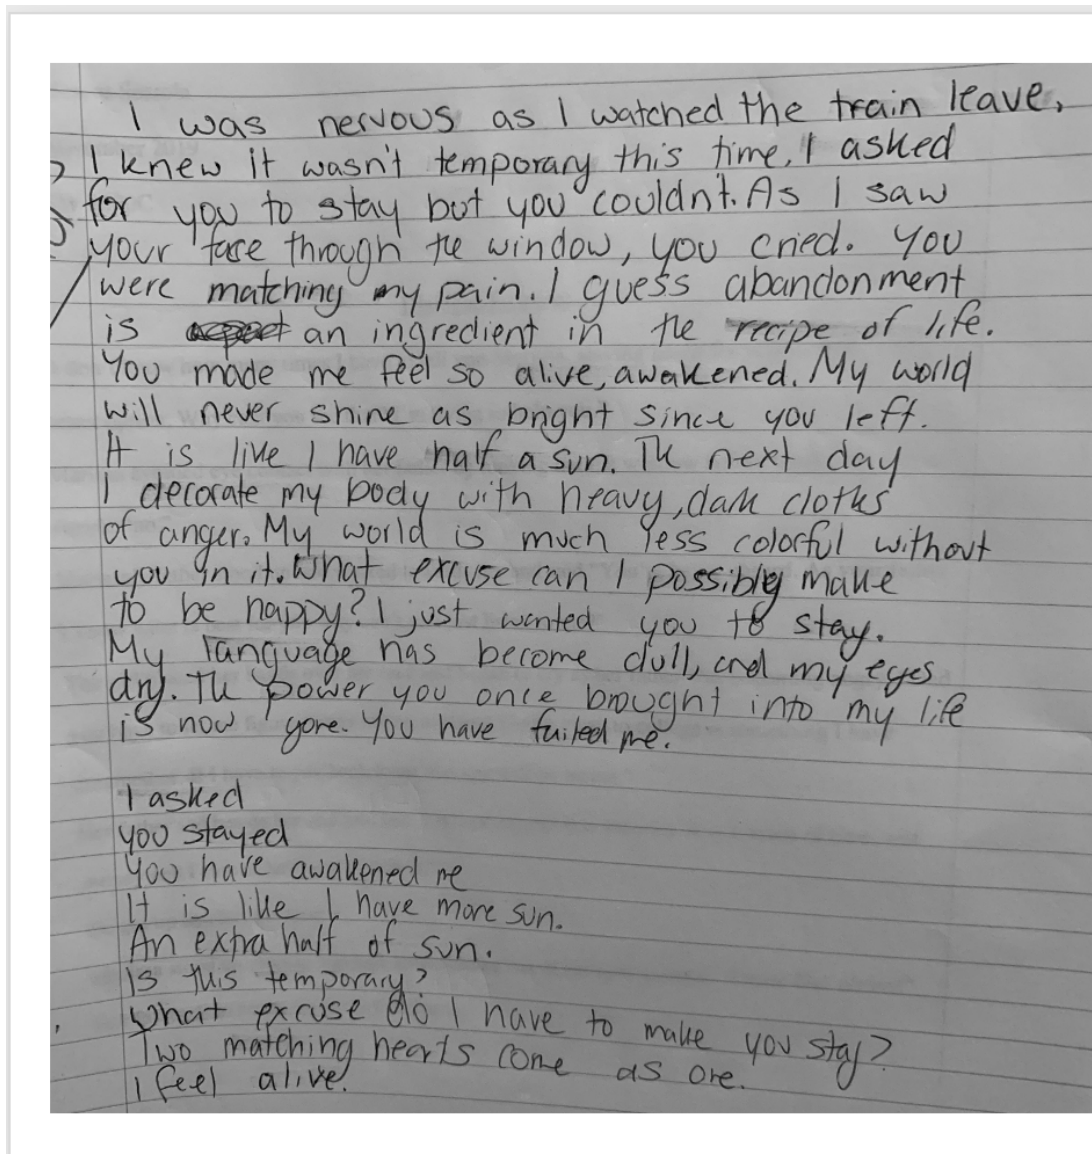 I was nervous as I watched the train leave,
I knew it wasn't temporary this time, I asked
for you to stay but you couldn't. As I saw
your face through the window, you cried. You
were matching my pain. I guess abandonment
is an ingredient in the recipe of life.
You made me feel so alive, awakened. My world
will never shine as bright since you left.
It is like I have half a sun. The next day
I decorate my body with heavy, dark cloths
of anger. My world is much less colorful without
you in it. What excuse can I possibly make
to be happy? I just wanted you to stay.
My language has become dull, and my eyes
dry. The power you once brought into my life
is now gone. You have failed me.
I asked
you stayed
You have awakened me
It is like I have more sun.
An extra half of sun.
Is this temporary?
What excuse do I have to make you stay?
Two matching hearts come as one.
I feel alive.